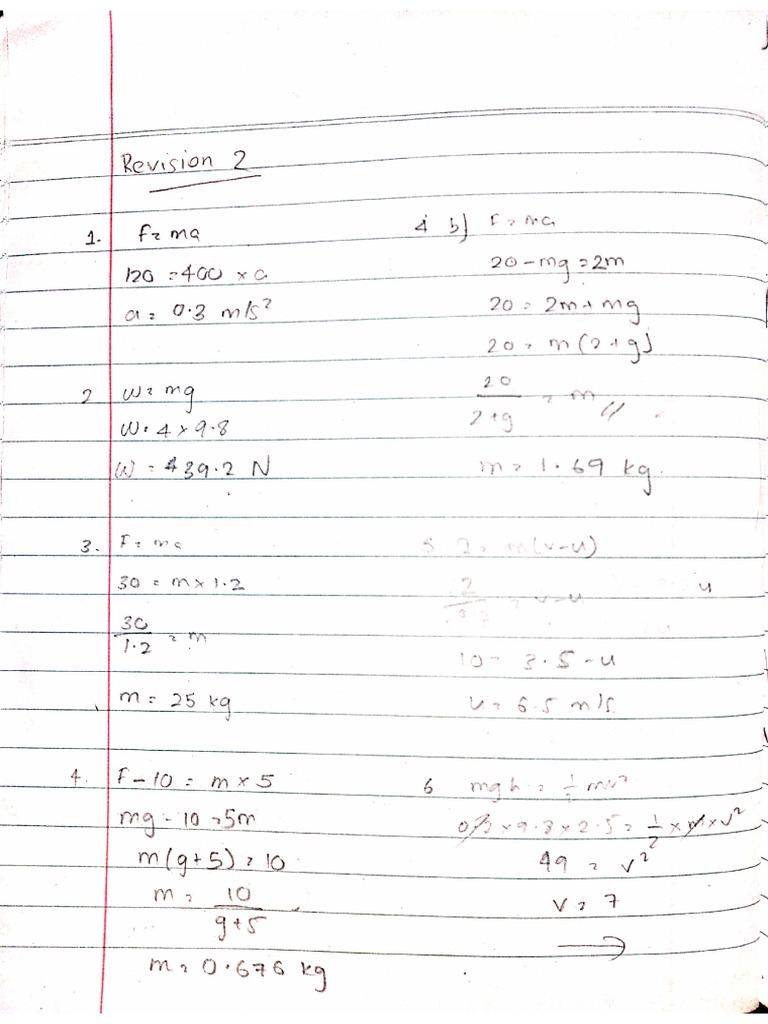 Revision 2
1. F = ma
120 = 400 × a
a = 0.3 m/s²
2 W = mg
W = 4 × 9.8
W = 39.2 N
3. F = ma
30 = m × 1.2
30/1.2 = m
m = 25 kg
4. F - 10 = m × 5
mg - 10 = 5m
m(g+5) = 10
m = 10/(g+5)
m = 0.676 kg
4 b) F = ma
20 - mg = 2m
20 = 2m + mg
20 = m(2+g)
20/(2+g) = m //
m = 1.69 kg.
5 2 = m(v-u)
= v-u
u
10 = 3.5 - u
u = 6.5 m/s
6 mgh = ½mv²
× 9.8 × 2.5 = ½ × m × v²
49 = v²
v = 7
→